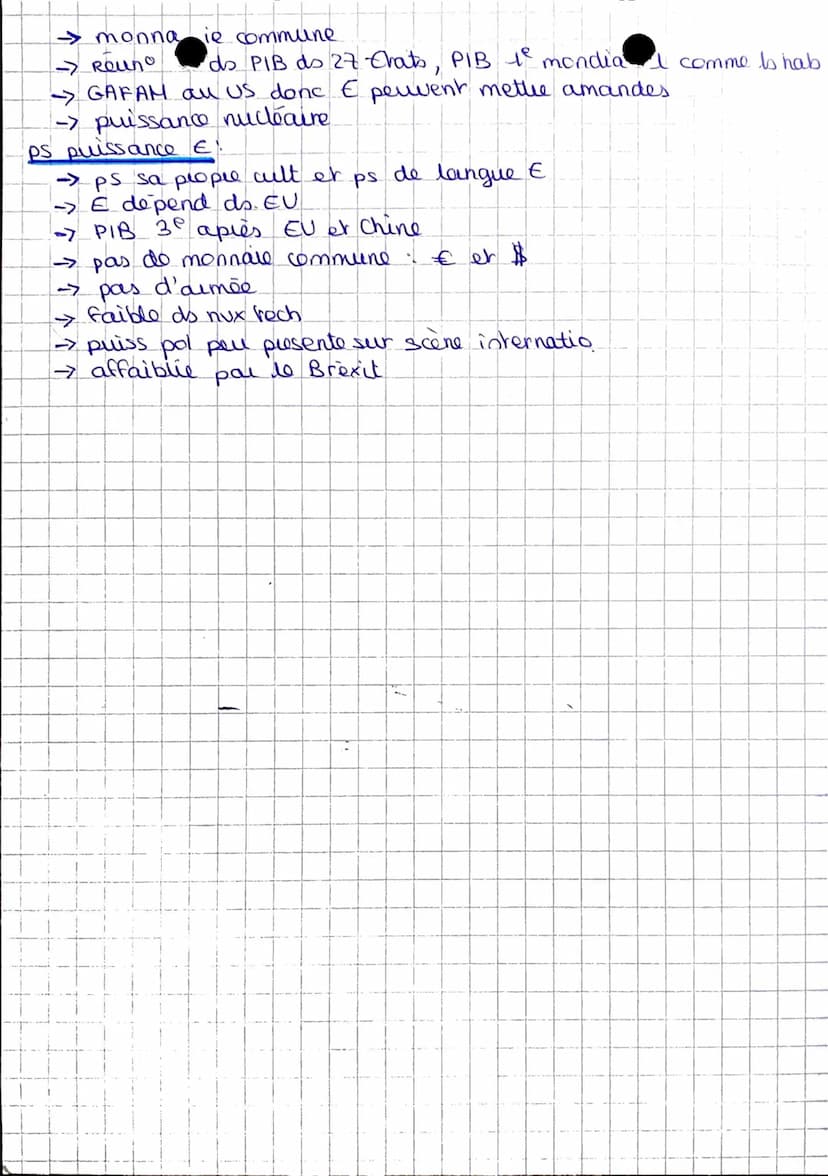 → monnaie commune
→ Réun° ds PIB ds 27 Etats, PIB 1e mondial comme ls hab
→ GAFAM au US donc € peuvent mettre amandes
→ puissance nucléaire
ps puissance €:
→ ps sa propre cult et ps de langue €
→ € dépend ds EU
→ PIB 3e après EU et Chine
→ pas de monnaie commune : € et $
→ pas d'armée
→ faible ds nvx tech
→ puiss pol peu presente sur scène internatio.
→ affaiblie par le Brexit